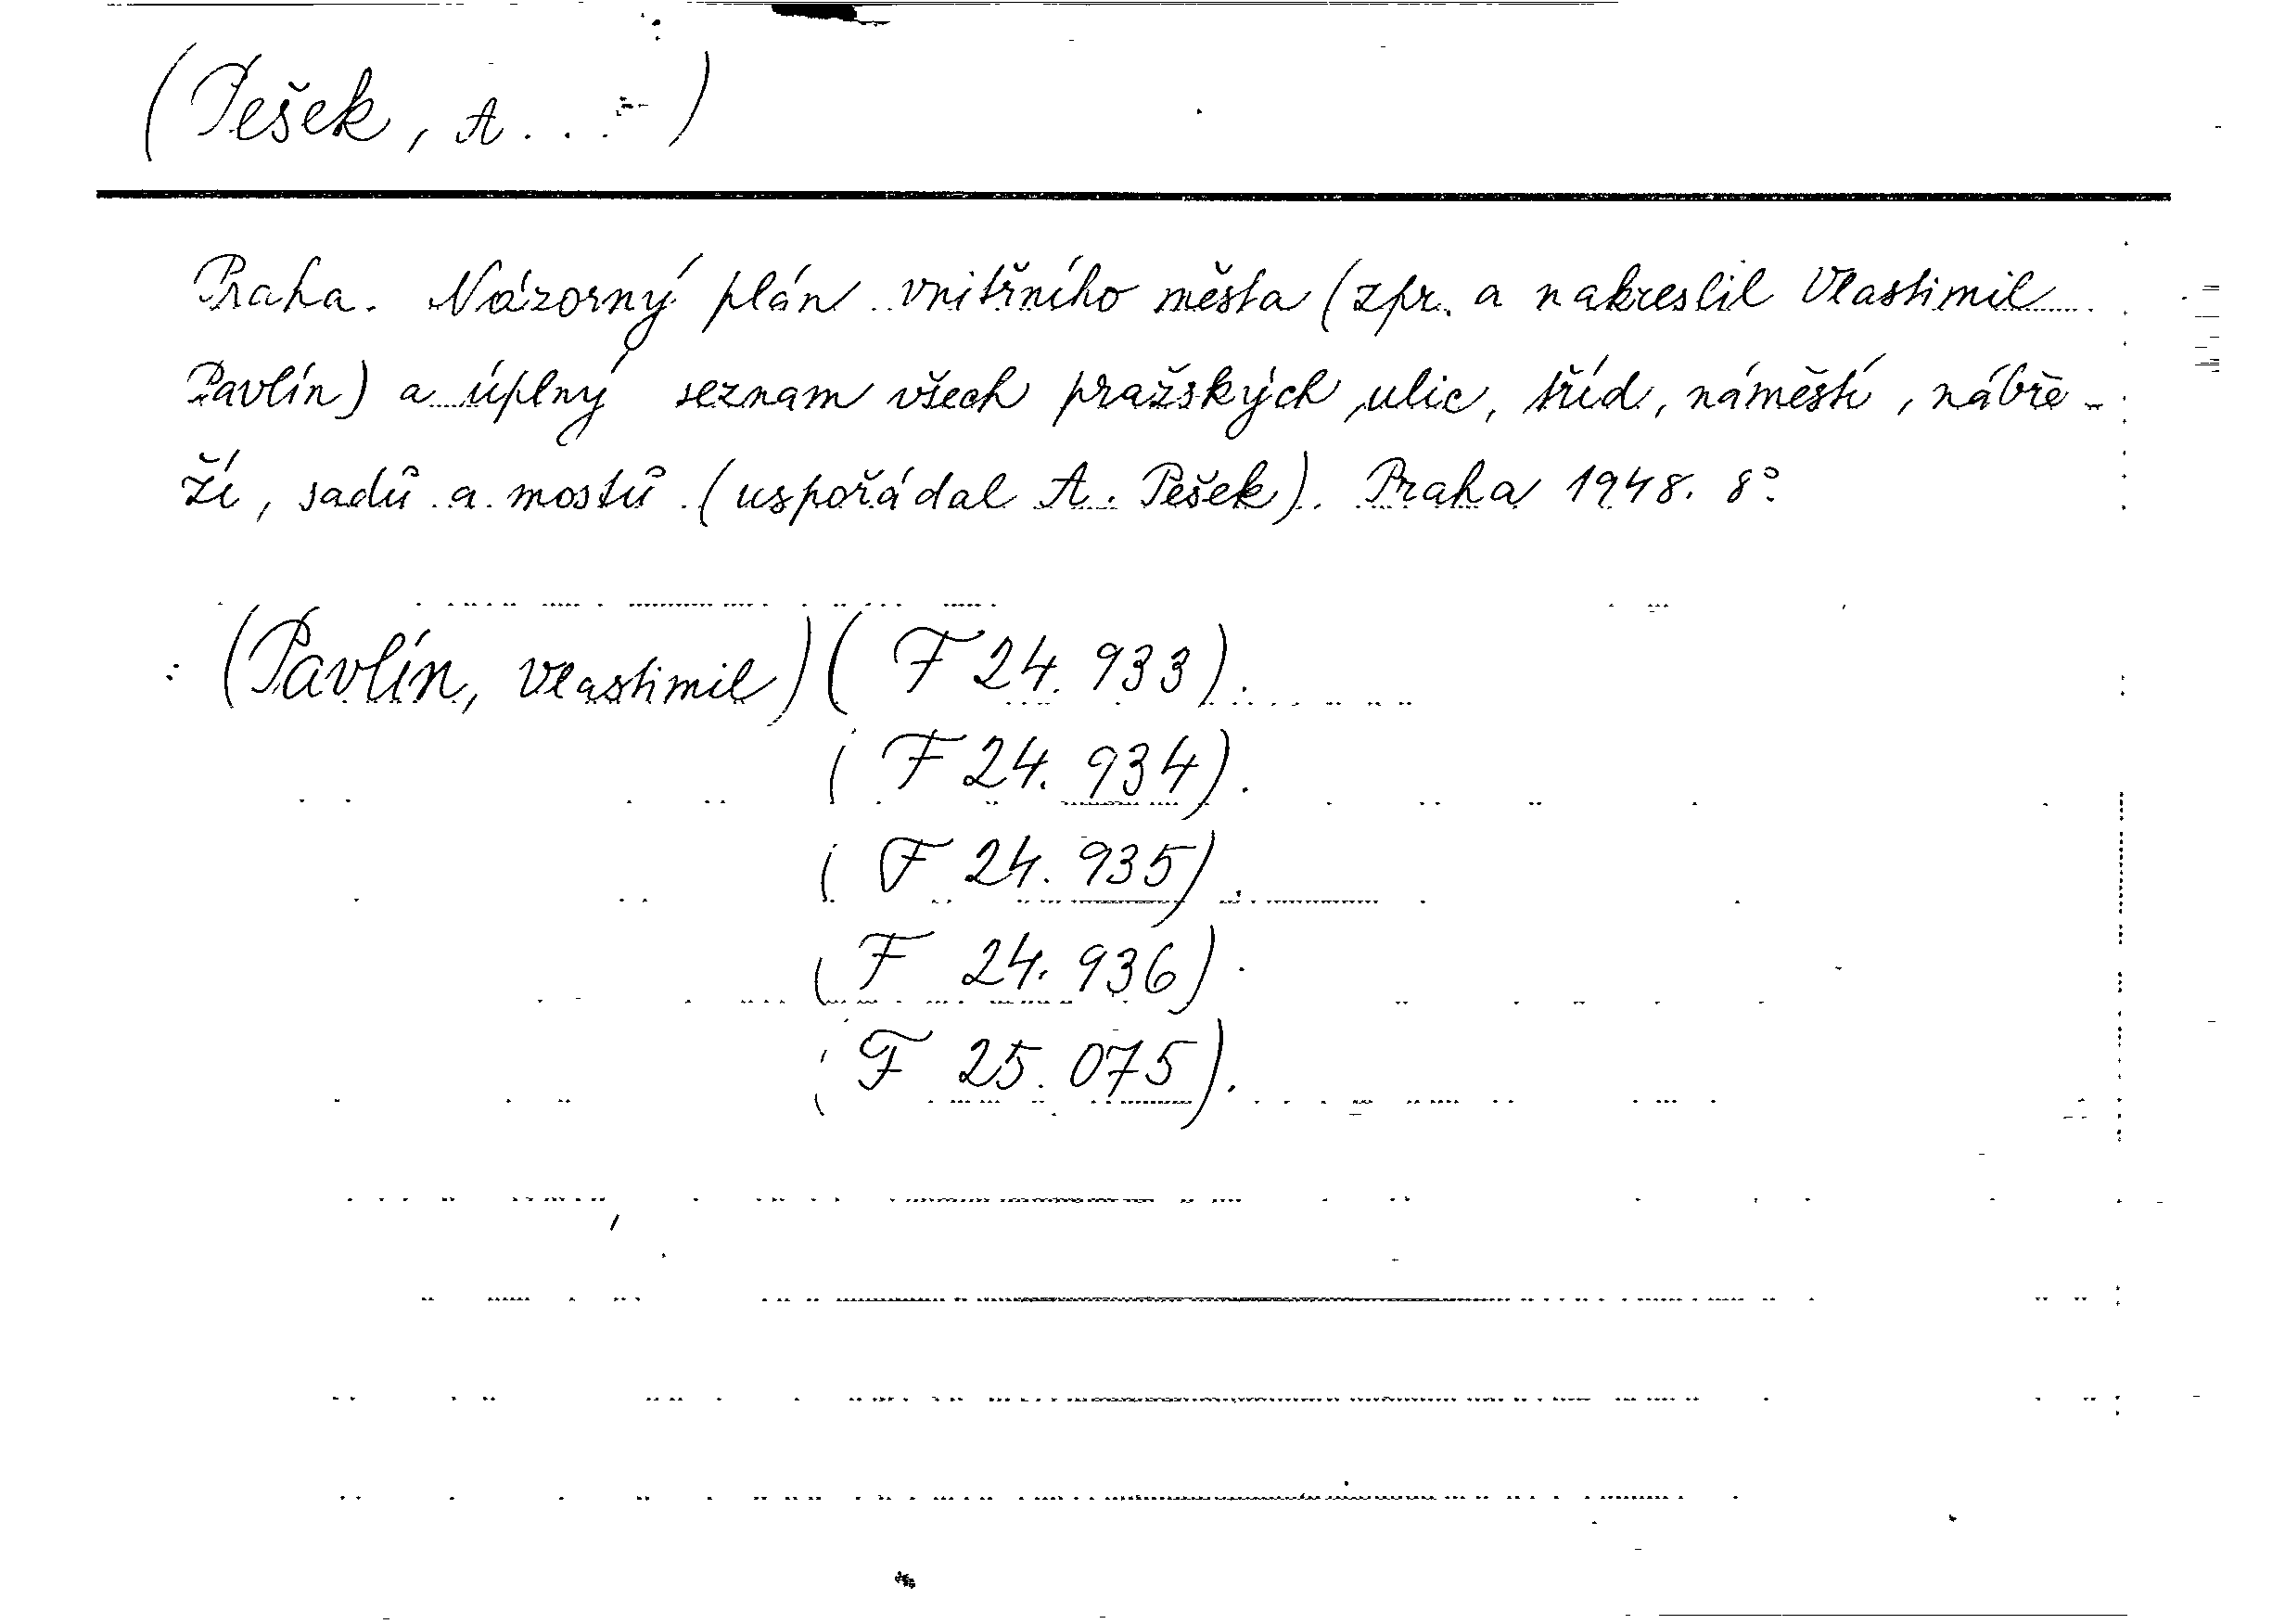 (Pešek, A...)
Praha. Názorný plán vnitřního města (zpr. a nakreslil Vlastimil
Pavlín) a úplný seznam všech pražských ulic, tříd, náměstí, nábře-
ží, sadů a mostů (uspořádal A. Pešek). Praha 1948. 8°.
(Pavlín, Vlastimil) (F 24.933).
(F 24.934).
(F 24.935).
(F 24.936).
(F 25.075).